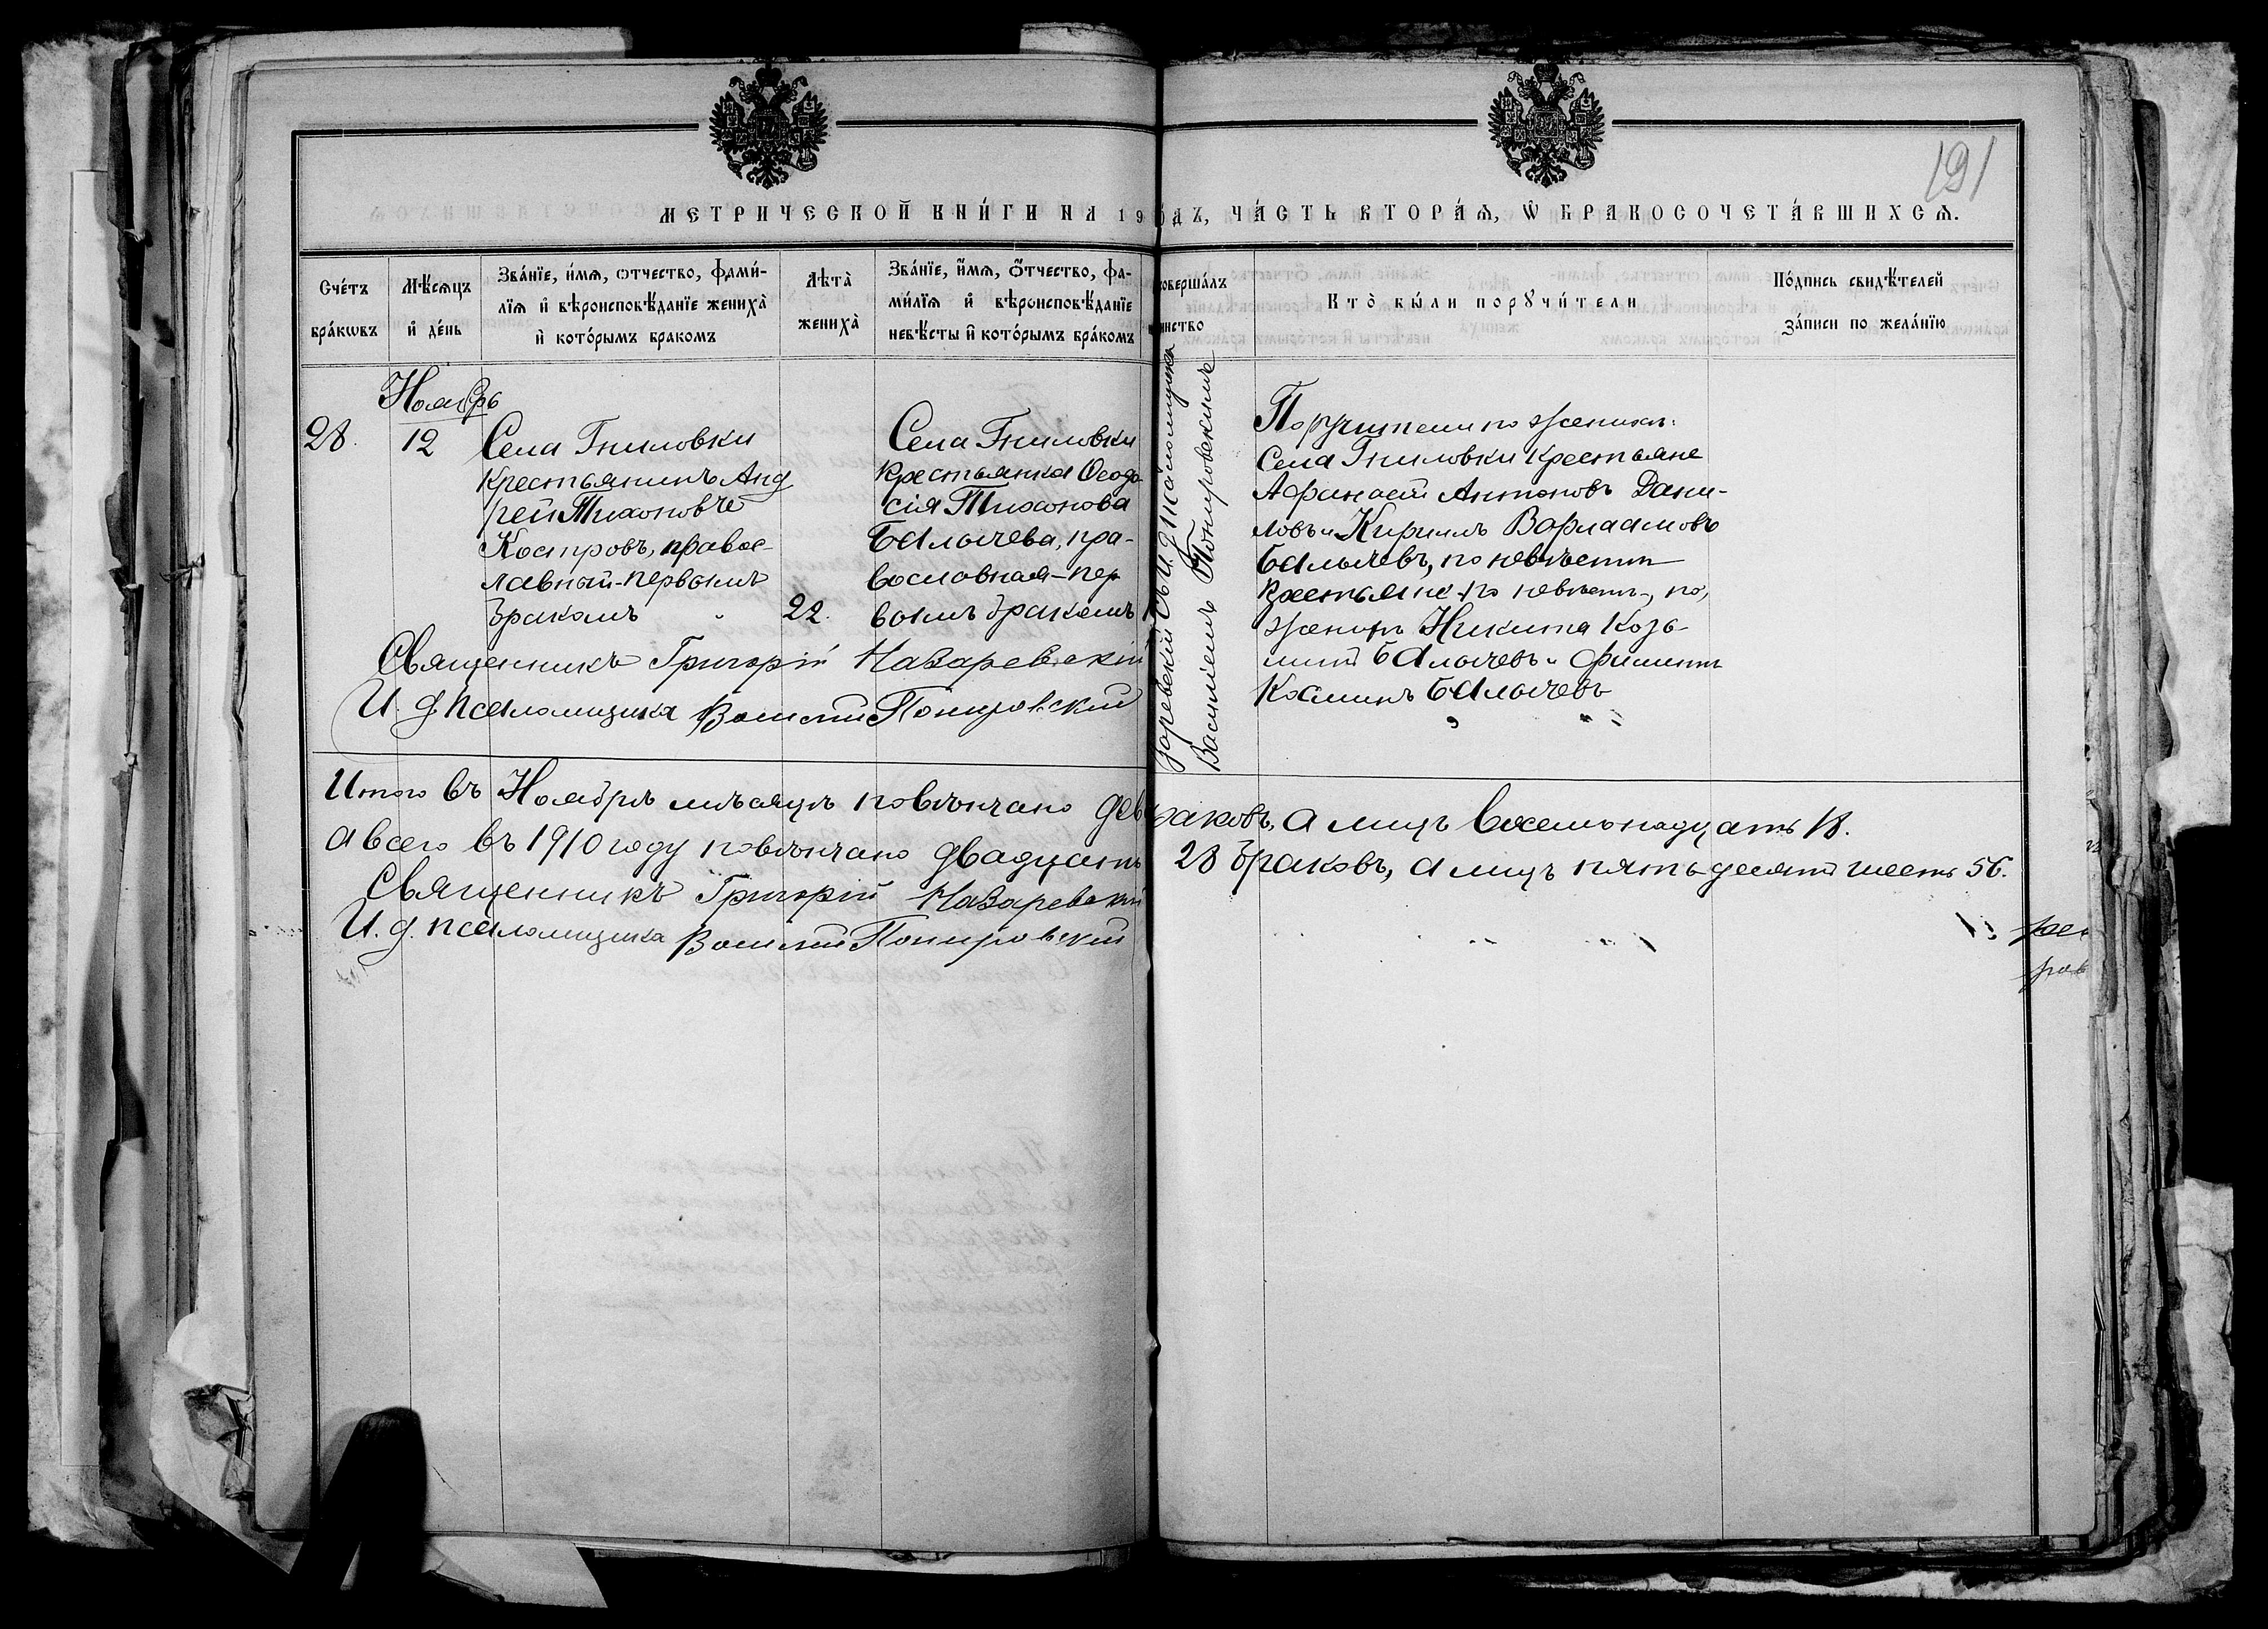 191
МЕТРИЧЕСКОЙ КНИ́ГИ НА 19 ОДЪ, ЧА́СТЬ ВТОРА́Ѧ, Ѡ҆ БРАКОСОЧЕТА́ВШИХСѦ.
Сче́тъ бра́кѡвъ
Мѣ́сѧцъ и҆ де́нь
Зва́нїе, и҆́мѧ, ѻтчество, фами́-
лїѧ и҆ вѣроисповѣ́данїе жениха̀
и҆ кото́рымъ бракомъ
Лѣта̀ жениха̀
Зва́нїе, и҆́мѧ, Ѻ҆́тчество, фа-
ми́лїѧ и҆ вѣроисповѣ́данїе
невѣ́сты и҆ кото́рымъ бра́комъ
соверша́лъ
инство
Кто̀ бы́ли порꙋчи́тели
По́дпись свидѣ́телей
за́писи по жела́нїю
Ноябрь
28. 12 Села Гниловки
Крестьянинъ Анд
рей Тихоновъ
Костровъ, правос-
лавный-первымъ
бракомъ 22.
Села Гниловки
Крестьянка Ѳеодо-
сія Тихонова
Балычева, пра-
вославная-пер
вымъ бракомъ
заревскій съ И. д. псаломщика
Василіемъ Понировскимъ
Поручители по женихѣ:
Села Гниловки крестьяне
Афанасій Антоновъ Дани-
ловъ и Кириллъ Варлаамовъ
Балычевъ, по невѣстѣ
Крестьяне по невѣстѣ, по,
женихѣ Никита Козь-
минъ Балычевъ и Филиппъ
Косминъ Балычевъ
Священникъ Григорій Назаревскій
И. д. псаломщика Василій Понировскій
Итого въ Ноябрѣ мѣсяцѣ повѣнчано дев браковъ, а лицъ восемьнадцать 18.
А всего въ 1910 году повѣнчано двадцать 28 браковъ, а лицъ пятьдесятъ шесть 56.
Священникъ Григорій Назаревскій
И. д. псаломщика Василій Понировскій